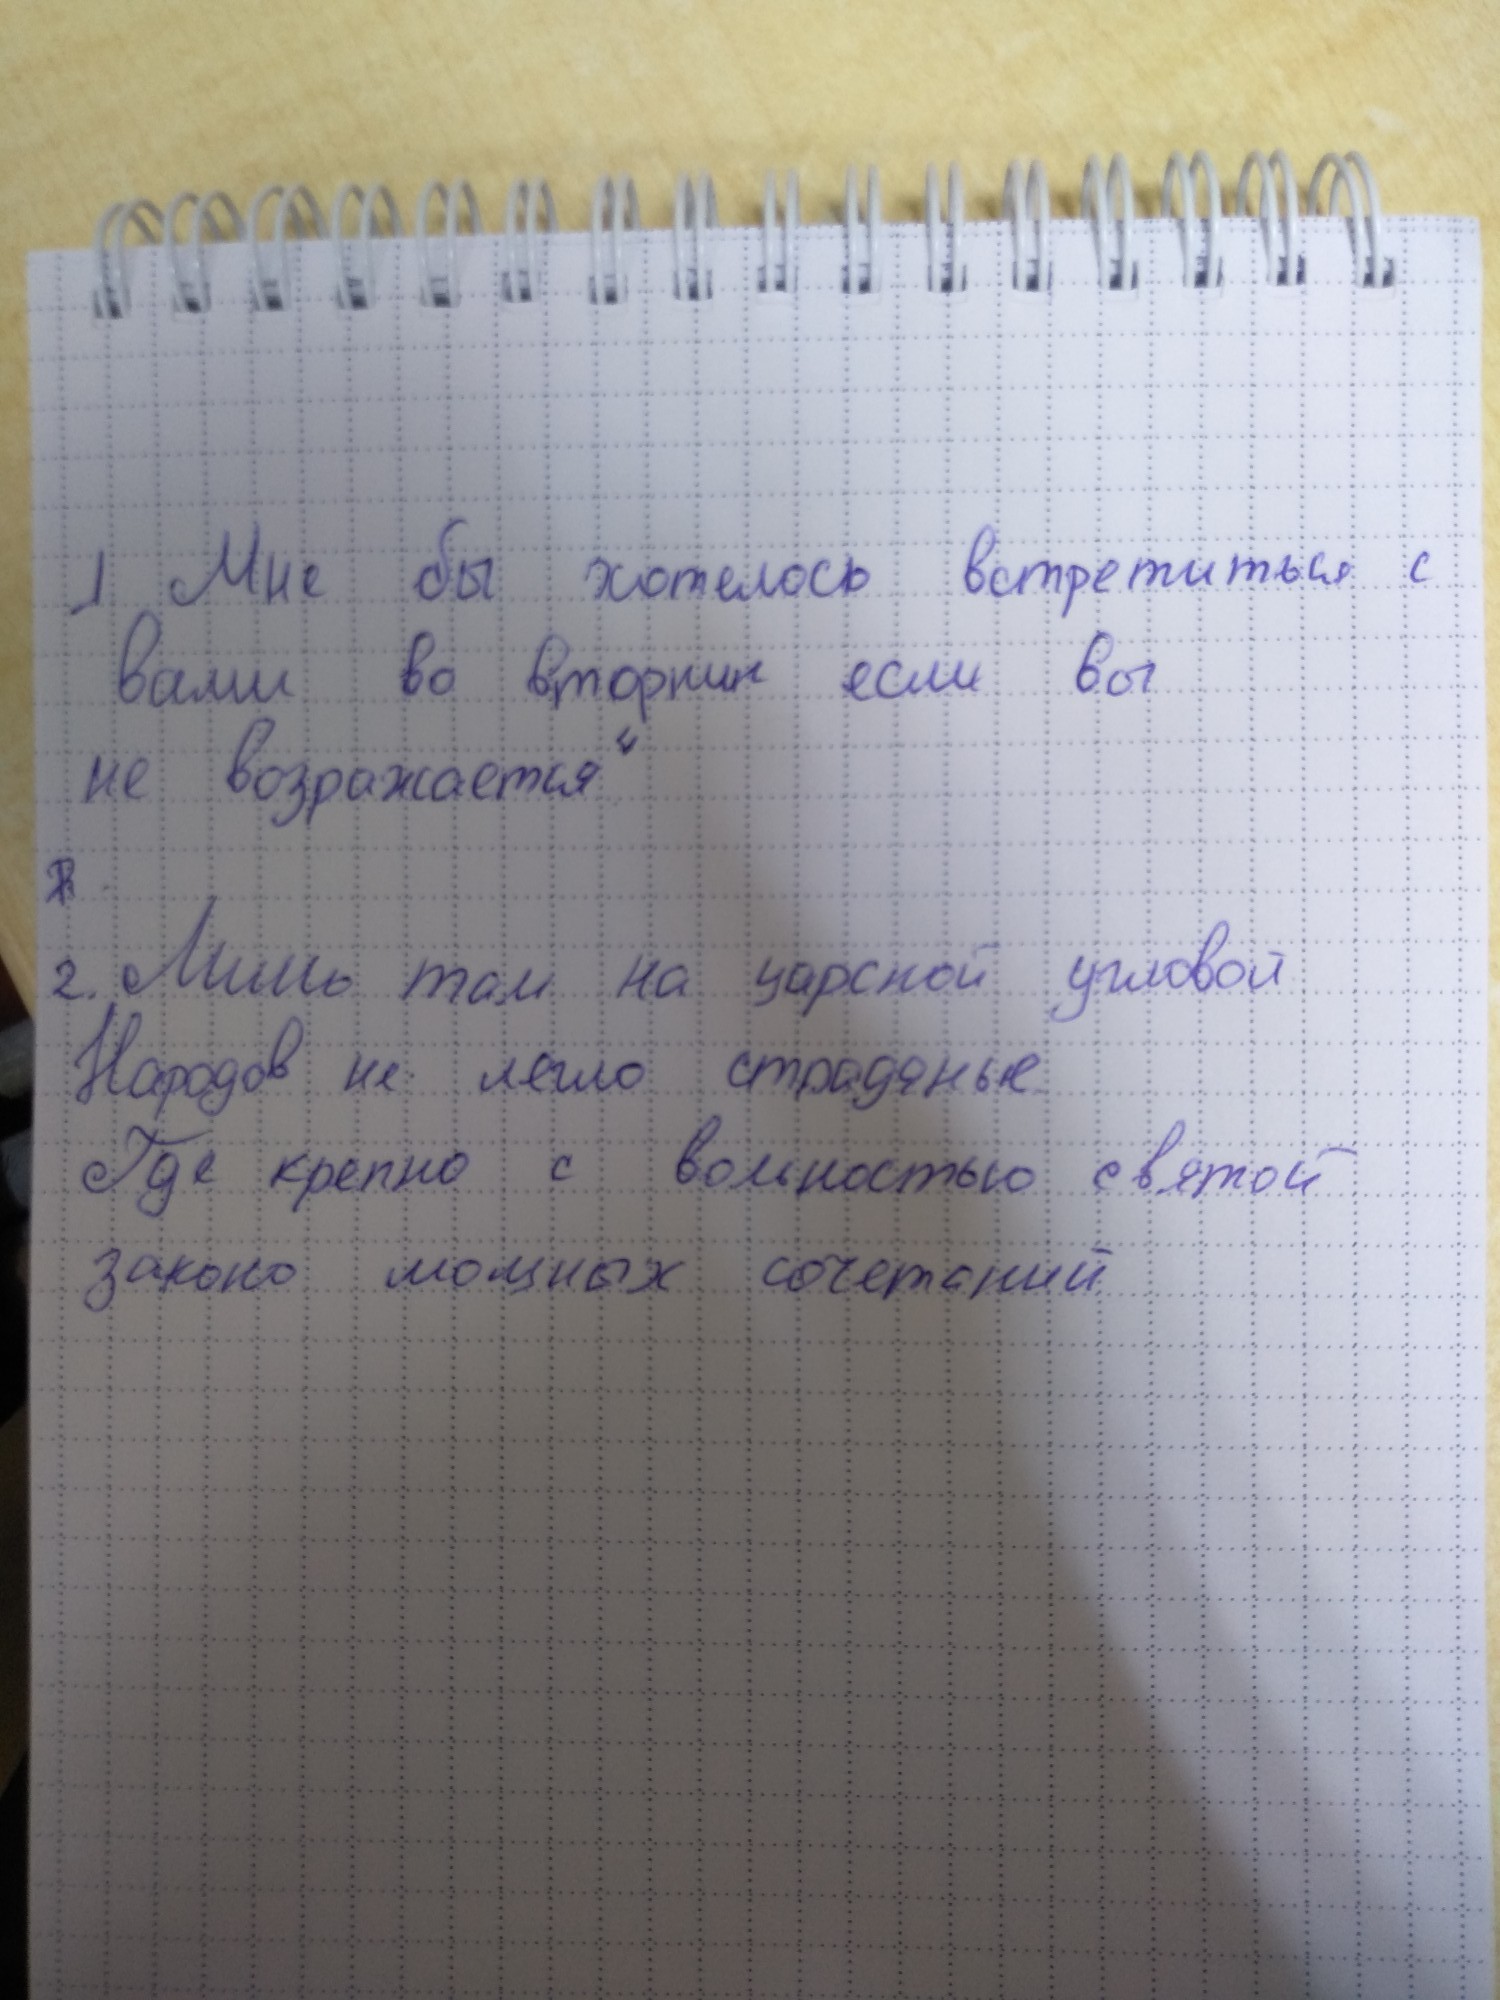 1 Мне бы хотелось встретиться с
вами во вторник если вы
не возражается"
2. Лишь там на царской угловой
Народов не легло страданье
Где крепко с вольностью святой
законо мощных сочетаний